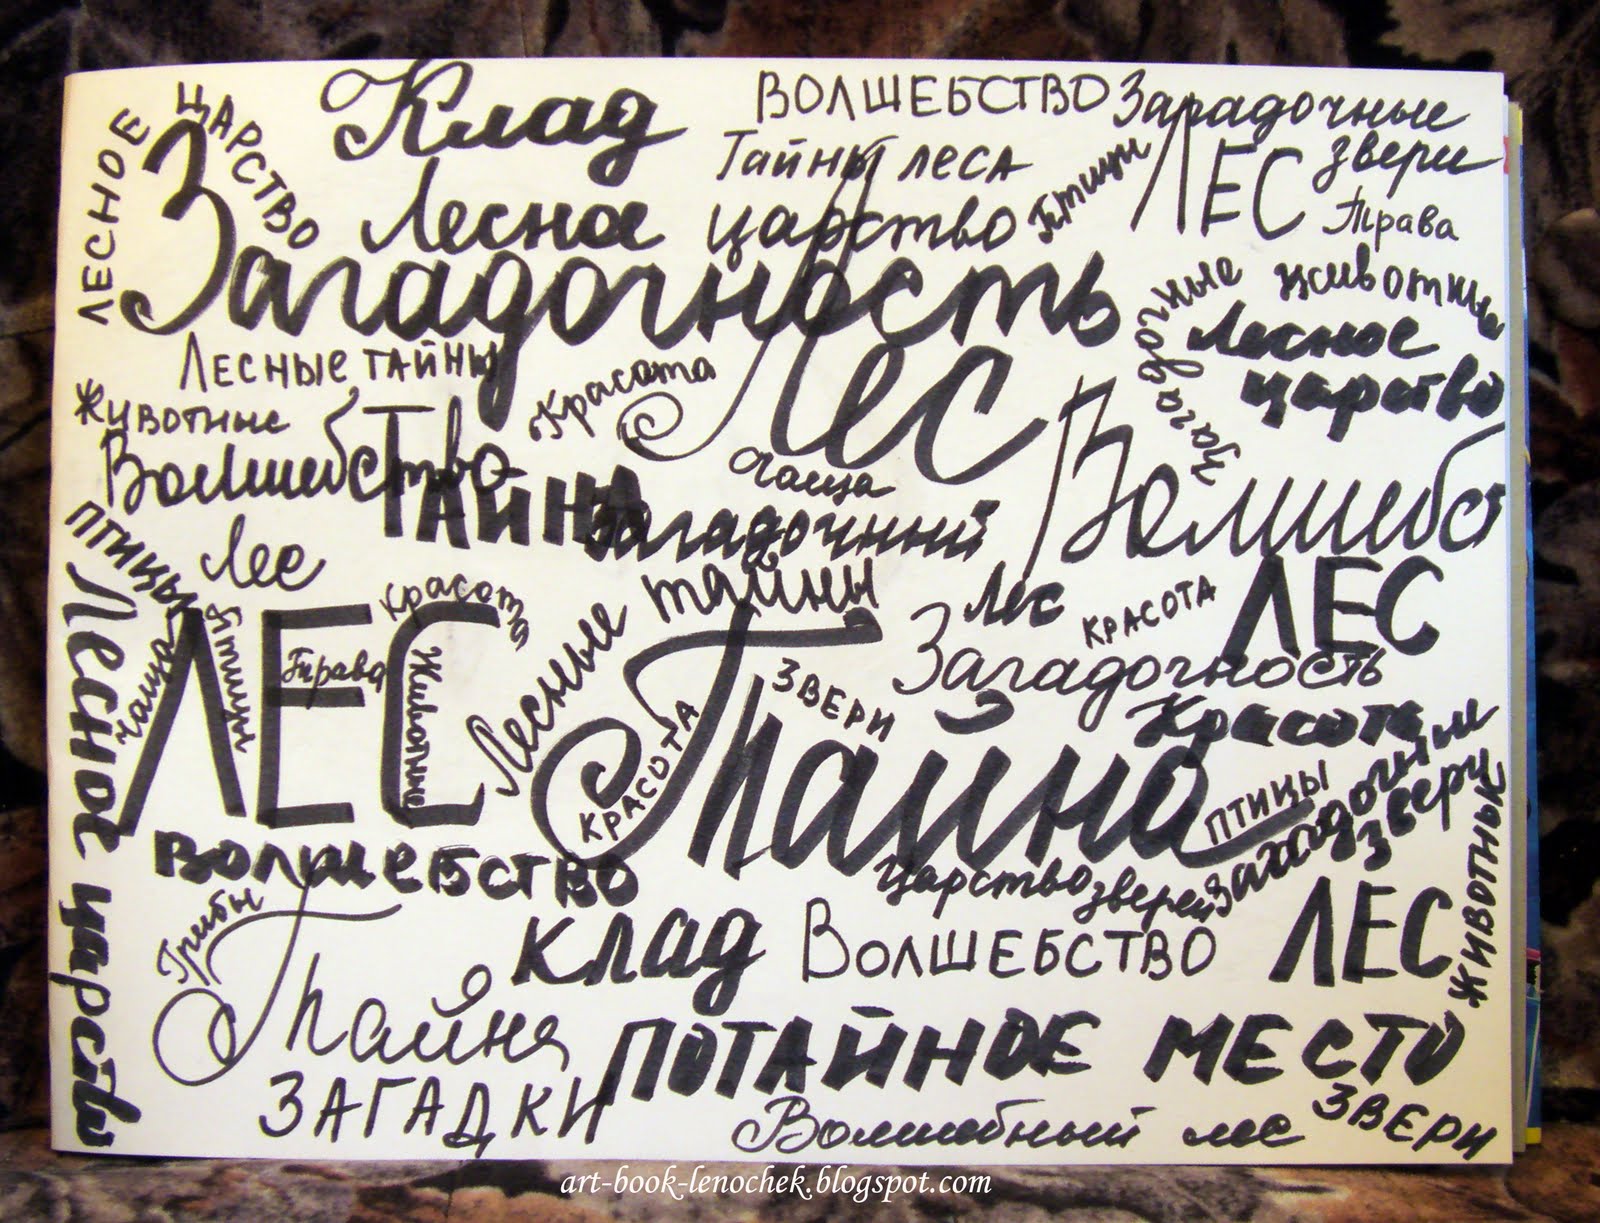 ЛЕСНОЕ ЦАРСТВО
Клад
ВОЛШЕБСТВО
Зарадочные звери
Тайны леса
Птицы
ЛЕС
Трава
Лесное царство
Загадочность
Загадочные животные
Лесное царство
Лесные тайны
Красота
Лес
Животные
Волшебство
ТАЙНА
Чаща
Загадочный
Волшебст
птицы
Лес
Лес
ЛЕС
Красота
Лесные тайны
КРАСОТА
Загадочность
Лесное царство
чаща
ЛЕС
птицы
Трава
Животные
Тайна
ЗВЕРИ
КРАСОТА
Красота
птицы
Загадочные звери
ЖИВОТНЫЕ
ВОЛШЕБСТВО
Царство зверей
Грибы
КЛАД
ВОЛШЕБСТВО
ЛЕС
Тайна
ПОТАЙНОЕ МЕСТО
ЗАГАДКИ
Волшебный лес
ЗВЕРИ
art-book-lenochek.blogspot.com